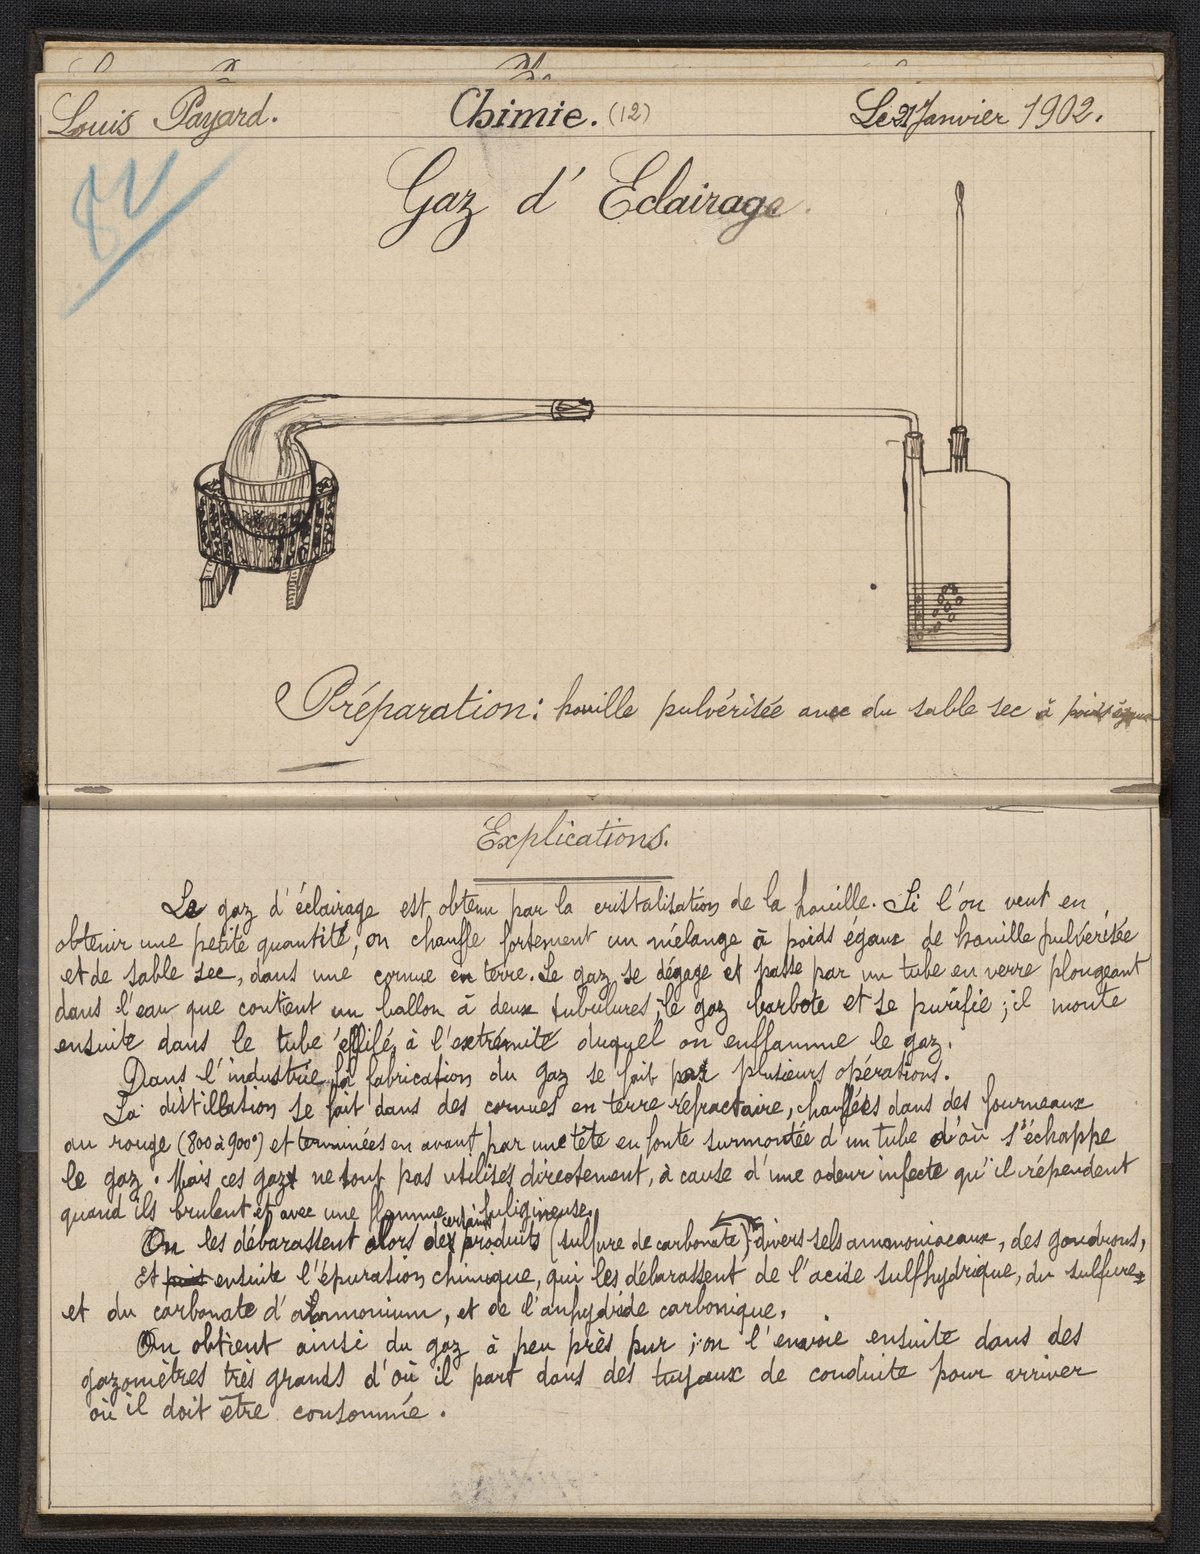 Louis Payard.
Chimie. (12)
Le 21 Janvier 1902.
Gaz d'Eclairage.
Préparation: houille pulvérisée avec du sable sec à poids égaux
Explications.
Le gaz d'éclairage est obtenu par la cristalisation de la houille. Si l'on veut en
obtenir une petite quantité, on chauffe fortement un mélange à poids égaux de houille pulvérisée
et de sable sec, dans une cornue en terre. Le gaz se dégage et passe par un tube en verre plongeant
dans l'eau que contient un ballon à deux tubulures; le gaz barbote et se purifie; il monte
ensuite dans le tube éffilé, à l'extrémité duquel on enflamme le gaz.
Dans l'industrie, la fabrication du gaz se fait par plusieurs opérations.
La distillation se fait dans des cornues en terre réfractaire, chauffées dans des fourneaux
au rouge (800 à 900°) et terminées en avant par une tête en fonte surmontée d'un tube d'où s'échappe
le gaz. Mais ces gaz ne sont pas utilisés directement, à cause d'une odeur infecte qu'il répendent
quand ils brulent et avec une flamme fuligineuse.
On les débarassent alors de certains produits (sulfure de carbonate) divers sels ammoniacaux, des goudrons,
Et puis ensuite l'épuration chimique, qui les débarassent de l'acide sulfhydrique, du sulfure
et du carbonate d'ammonium, et de l'anhydride carbonique.
On obtient ainsi du gaz à peu près pur; on l'envoie ensuite dans des
gazomètres très grands d'où il part dans des tuyaux de conduite pour arriver
où il doit être consommée.